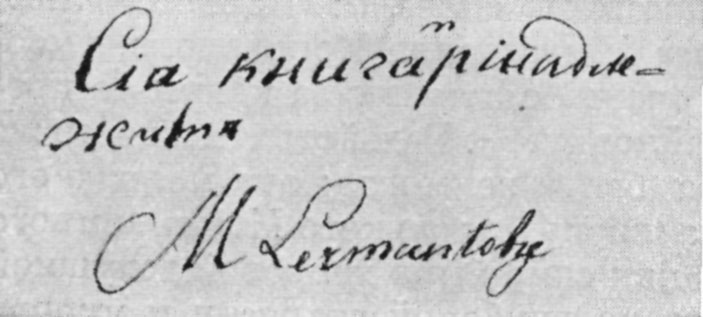 Сіа книга пріннадле-
житъ
M Lermantow